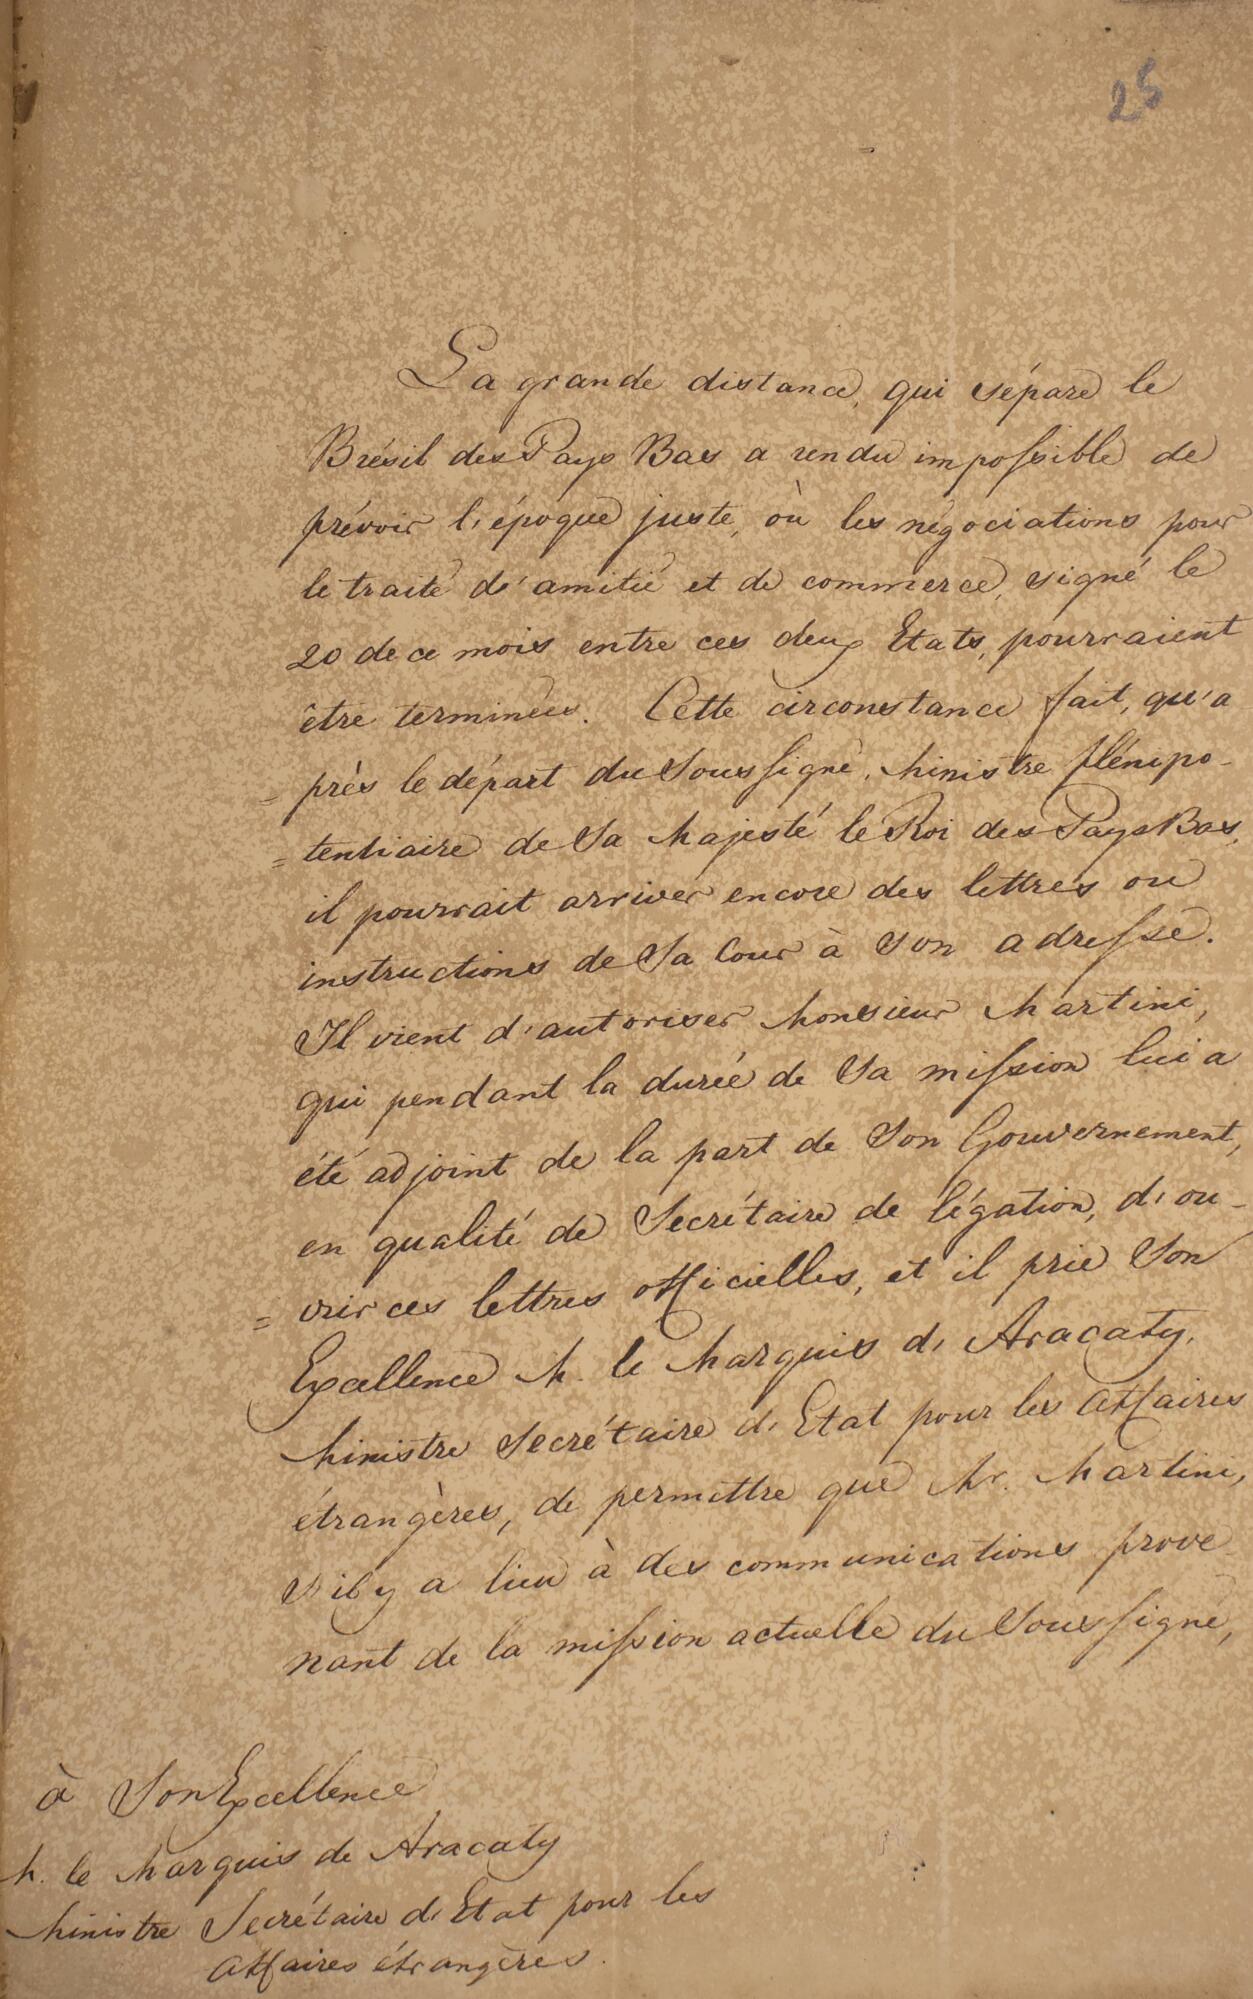 25
La grande distance, qui sépare le
Brésil des Pays Bas a rendu impossible de
prévoir l'époque juste, où les négociations pour
le traité d'amitié et de commerce, signé le
20 de ce mois entre ces deux Etats, pourraient
être terminées. Cette circonstance fait, qu'a
= près le départ du Soussigné, Ministre plénipo-
= tentiaire de Sa Majesté le Roi des Pays Bas,
il pourrait arriver encore des lettres ou
instructions de Sa Cour à son adresse.
Il vient d'autoriser Monsieur Martini,
qui pendant la durée de Sa mission lui a
été adjoint de la part de Son Gouvernement,
en qualité de Secrétaire de légation, d'ou-
= vrir ces lettres officielles, et il prie Son
Excellence M. le Marquis d'Aracaty,
Ministre Secrétaire d'Etat pour les affaires
étrangères, de permettre que Mr. Martini,
s'il y a lieu à des communications prove-
nant de la mission actuelle du Soussigné,
à Son Excellence
M. le Marquis de Aracaty
Ministre Secrétaire d'Etat pour les
affaires étrangères.